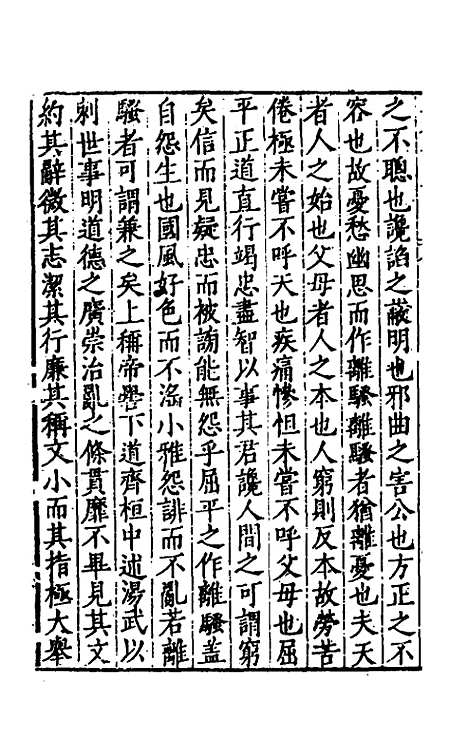 之不聰也讒諂之蔽明也邪曲之害公也方正之不
容也故憂愁幽思而作離騷離騷者猶離憂也夫天
者人之始也父母者人之本也人窮則反本故勞苦
倦極未嘗不呼天也疾痛慘怛未嘗不呼父母也屈
平正道直行竭忠盡智以事其君讒人間之可謂窮
矣信而見疑忠而被謗能無怨乎屈平之作離騷蓋
自怨生也國風好色而不滛小雅怨誹而不亂若離
騷者可謂兼之矣上稱帝嚳下道齊桓中述湯武以
刺世事明道德之廣崇治亂之條貫靡不畢見其文
約其辭微其志潔其行廉其稱文小而其指極大舉